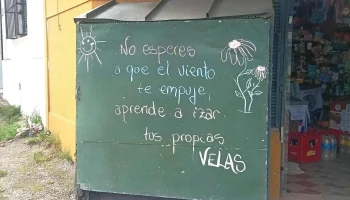 No esperes
a que el viento
te empuje,
aprende a izar
tus propias
VELAS